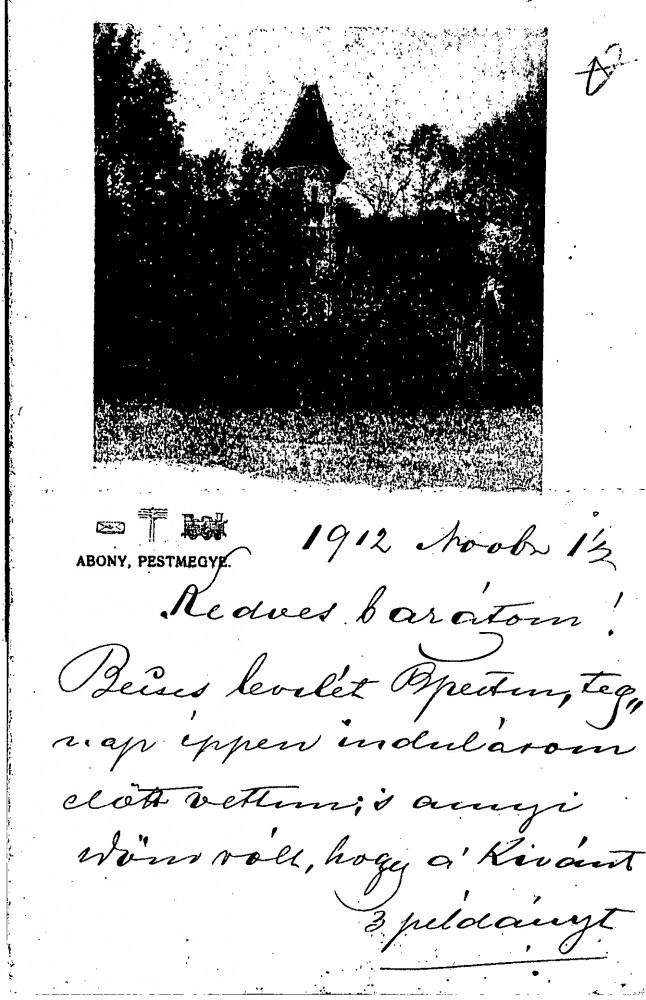 ABONY, PESTMEGYE.
1912 Novbr
Kedves barátom!
Becses levelét Bpesten, teg„
nap éppen indulásom
előtt vettem; s annyi
időm vólt, hogy a' Kivánt
3 példányt